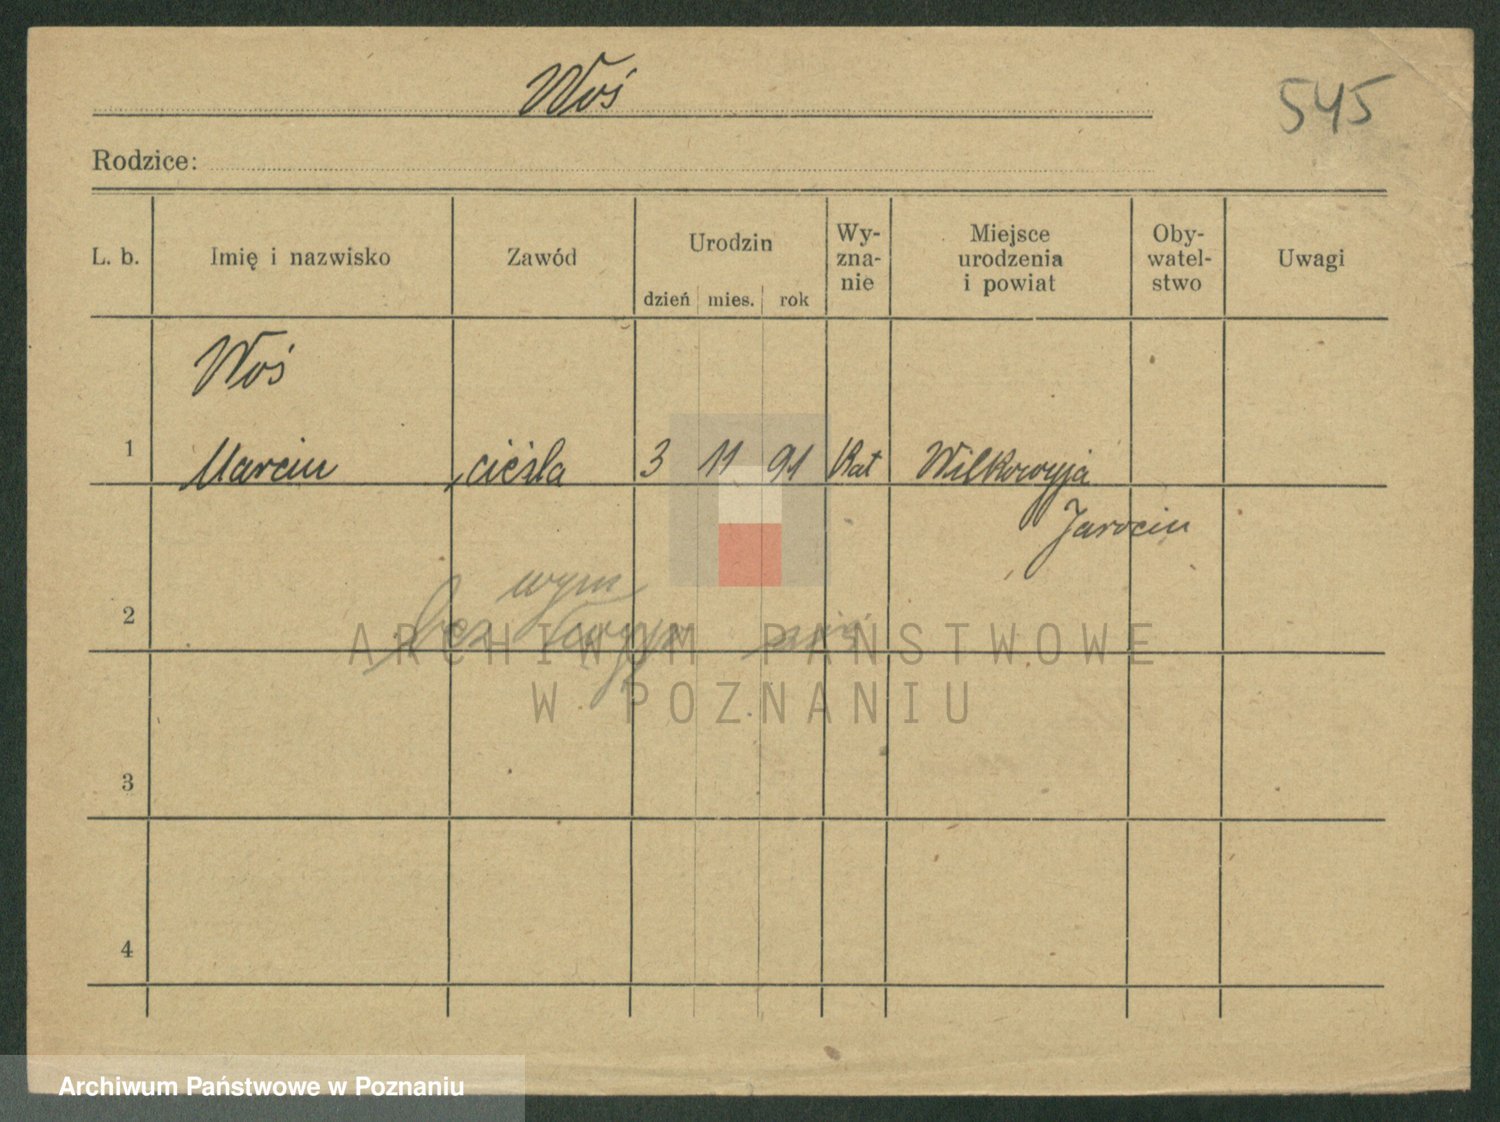 Woś
545
Rodzice:
L. b.
Imię i nazwisko
Zawód
Urodzin
dzień mies. rok
Wy-
zna-
nie
Miejsce
urodzenia
i powiat
Oby-
watel-
stwo
Uwagi
Woś
1 Marcin cieśla 3 11 91 Kat Wilkowyja
Jarocin
wym
2 bez
ARCHIWUM PAŃSTWOWE
W POZNANIU
3
4
Archiwum Państwowe w Poznaniu